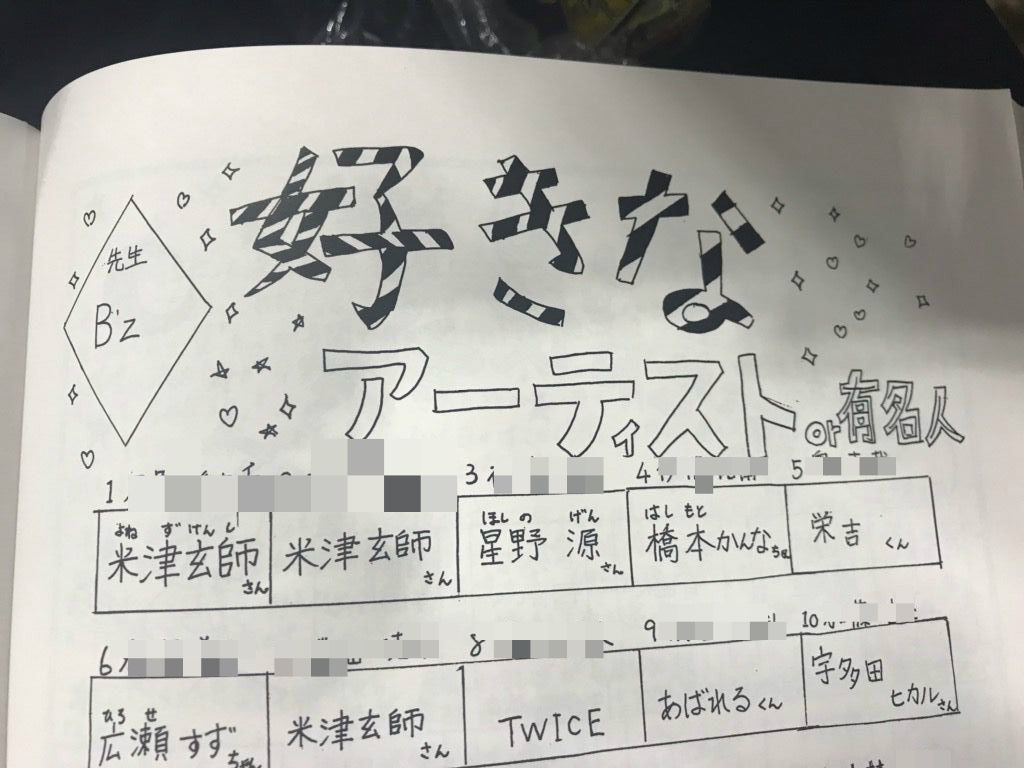 先生
B'z
好きな
アーティスト or 有名人
1
3
4
5
よねづけんし
米津玄師さん
米津玄師さん
ほしの げん
星野 源さん
はしもと
橋本かんなちゃん
栄吉くん
6
8
9
10
ひろせ
広瀬すずちゃん
米津玄師さん
TWICE
あばれるくん
宇多田
ヒカルさん